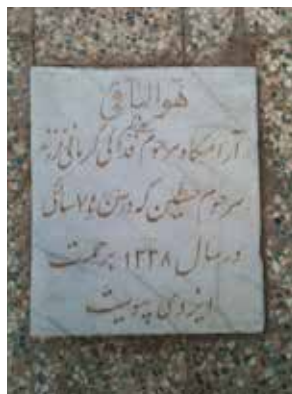 هوالباقی
آرامگاه مرحوم فدائی کرمانی فرزند
مرحوم که در سن ۷۵ سالگی
در سال ۱۳۳۸ برحمت
ایزدی پیوست